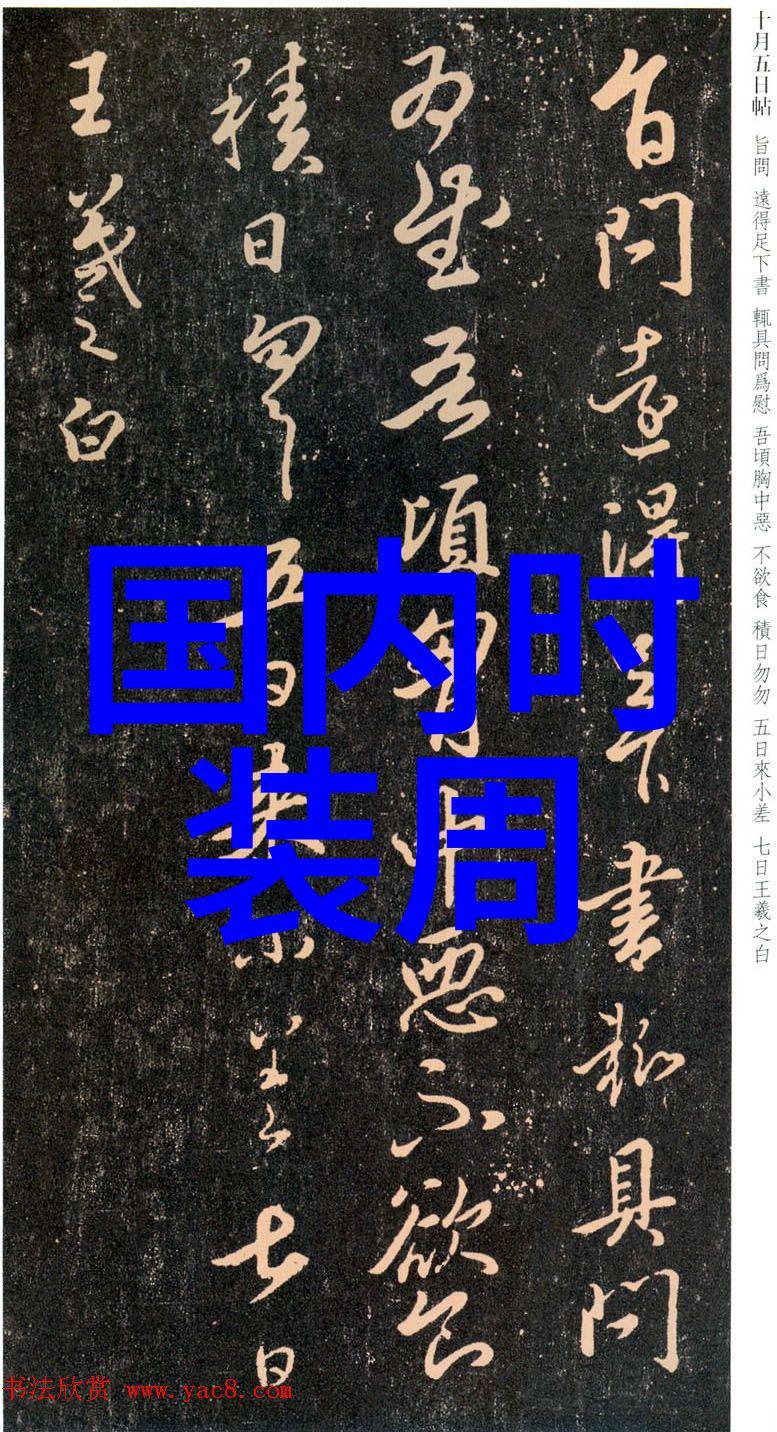 十月五日帖 旨問 遠得足下書 輒具問爲慰 吾頃胸中惡 不欲食 積日勿勿 五日來小差 七日王羲之白
旨問遠得足下書輒具問
爲慰吾頃胸中惡不欲食
積日勿勿五日來小差七日
王羲之白
国内时
装周
书法欣赏 www.yac8.com